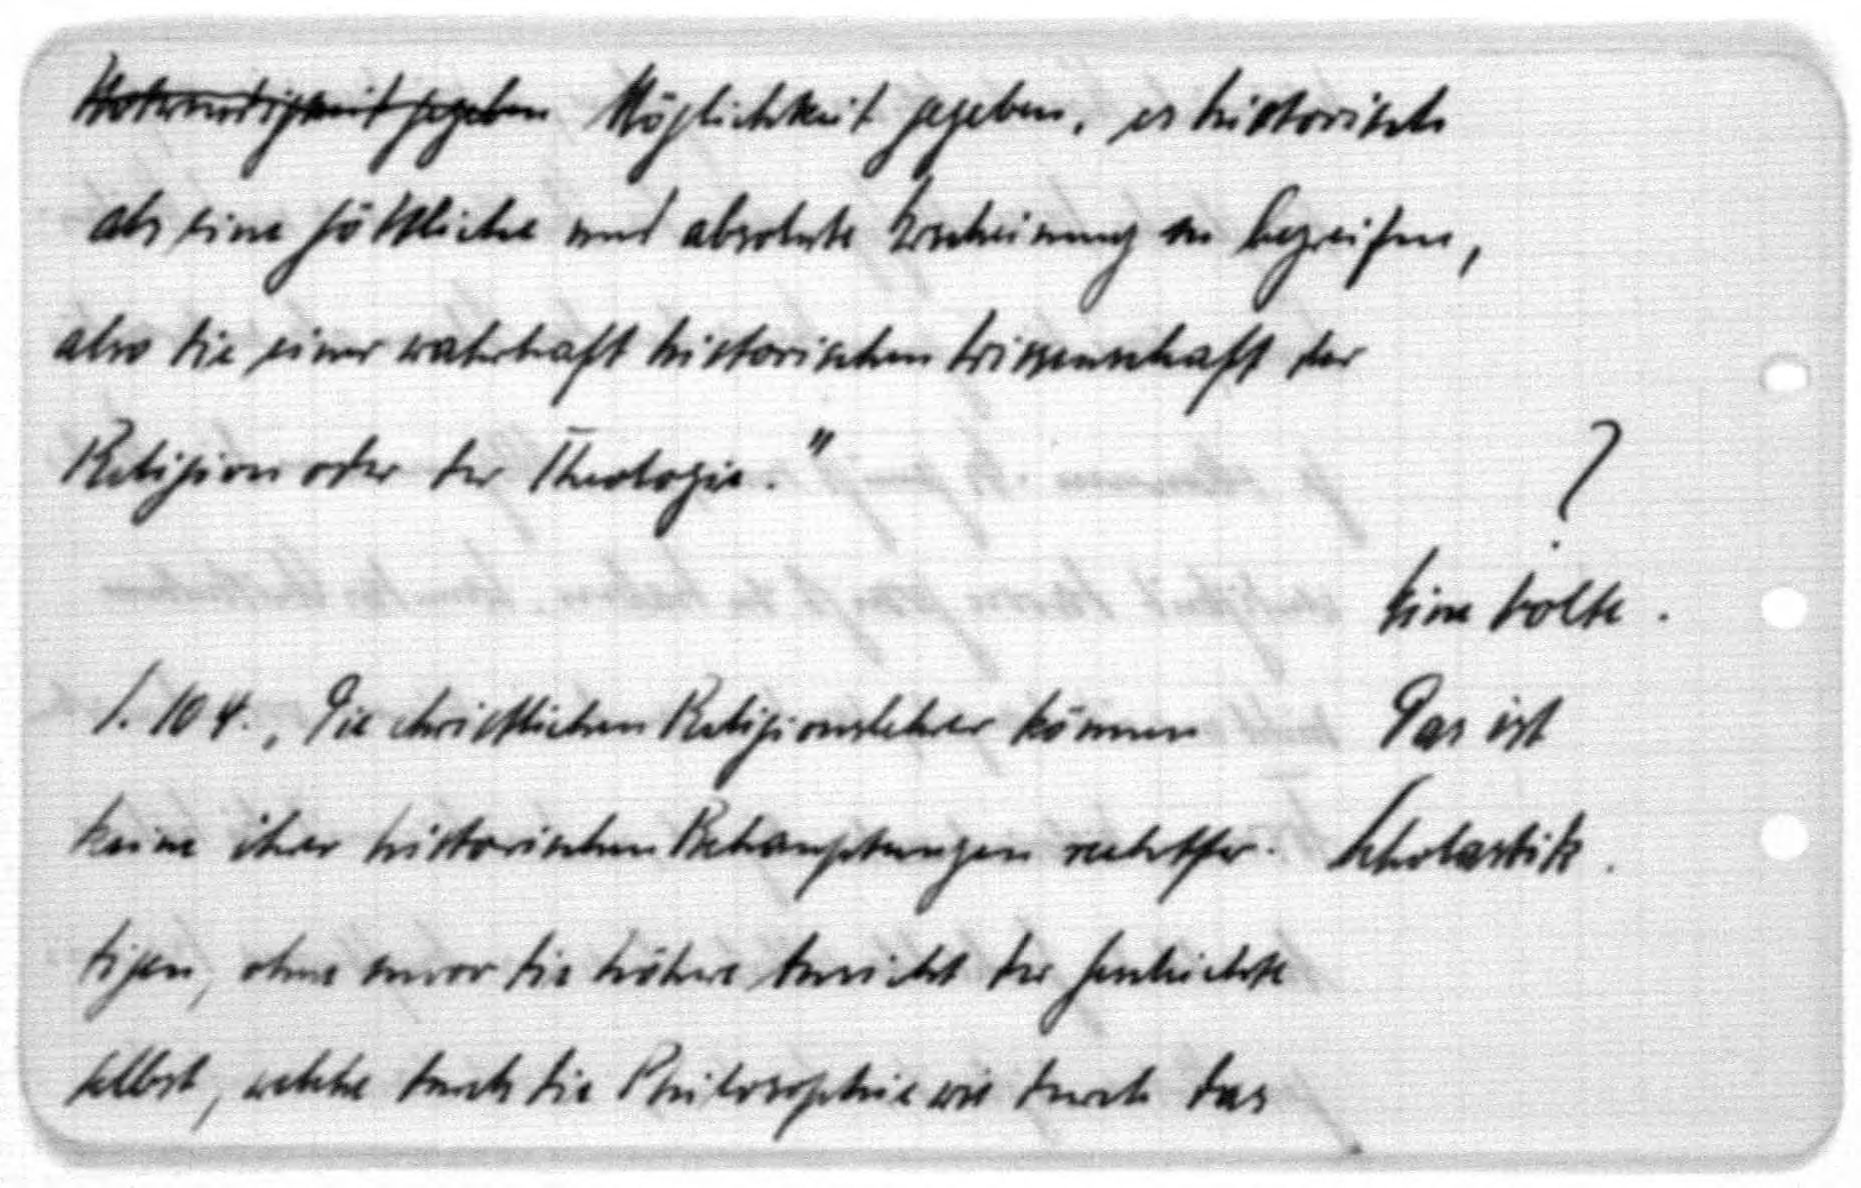 ~~Notwendigkeit gegeben~~ Möglichkeit gegeben, es historisch
als eine göttliche und absolute Erscheinung zu begreifen,
also die einer wahrhaft historischen Wissenschaft der
Religion oder der Theologie."
?
Eine Volte.
S. 104. „Die christlichen Religionslehrer können
Das ist
keine ihrer historischen Behauptungen rechtfer-
Scholastik.
tigen, ohne zuvor die höhere Ansicht der Geschichte
selbst, welche durch die Philosophie wie durch das